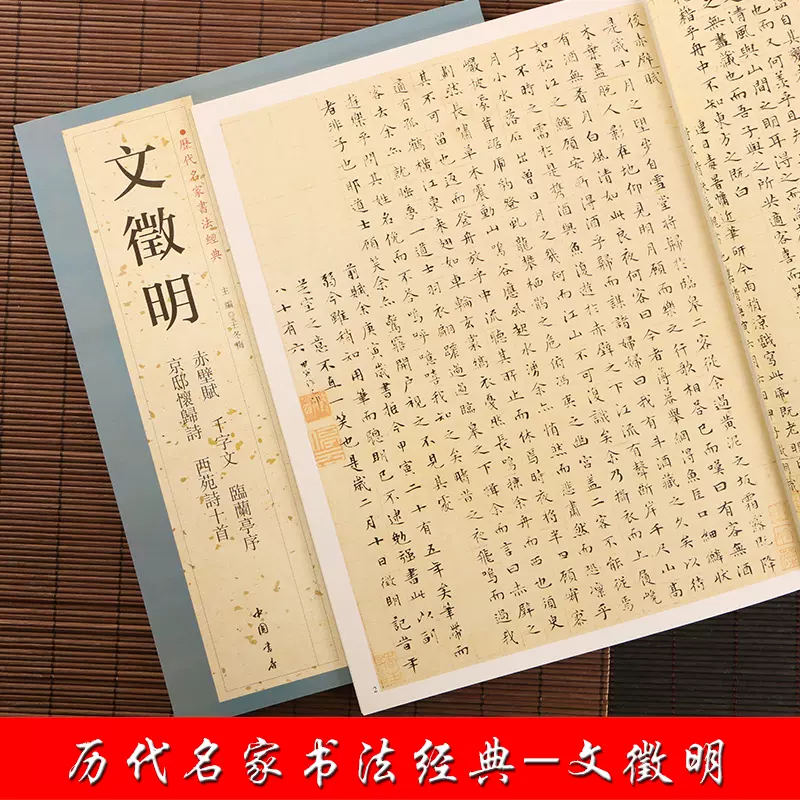 歷代名家書法經典
文徵明
主編 王冬梅
赤壁賦 千字文 臨蘭亭序
京邸懷歸詩 西苑詩十首
中國書店
後赤壁賦
是歲十月之望步自雪堂將歸於臨皋二客從余過黃泥之坂霜露既降
木葉盡脫人影在地仰見明月顧而樂之行歌相答已而嘆曰有客無酒
有酒無肴月白風清如此良夜何客曰今者薄暮舉網得魚巨口細鱗狀
如松江之鱸顧安所得酒乎歸而謀諸婦婦曰我有斗酒藏之久矣以待
子不時之需於是攜酒與魚復遊於赤壁之下江流有聲斷岸千尺山高
月小水落石出曾日月之幾何而江山不可復識矣余乃攝衣而上履巉
巖披蒙茸踞虎豹登虬龍攀栖鶻之危巢俯馮夷之幽宮蓋二客不能從焉
劃然長嘯草木震動山鳴谷應風起水湧余亦悄然而悲肅然而恐凜乎
其不可留也返而登舟放乎中流聽其所止而休焉時夜將半四顧寂寥
適有孤鶴橫江東來翅如車輪玄裳縞衣戛然長鳴掠余舟而西也須臾
客去余亦就睡夢一道士羽衣翩躚過臨皋之下揖余而言曰赤壁之
遊樂乎問其姓名俛而不答嗚呼噫嘻我知之矣疇昔之夜飛鳴而過我
者非子也耶道士顧笑余亦驚寤開戶視之不見其處
前賦余庚寅歲書抵今甲寅二十有五年矣筆滯而
弱今雖稍知用筆而聰明已不逮勉強書此以副
芝室之意不直一笑也是歲二月十日徵明記昔年
八十有六
2
清風與山間之明月耳得之
也而吾子與之所共適客喜
籍乎舟中不知東方之既白
历代名家书法经典-文徵明